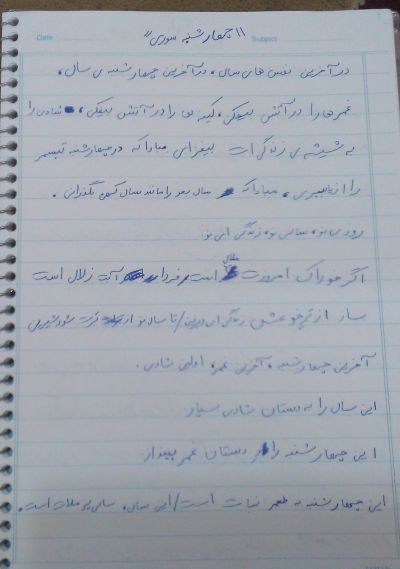 Date
Subject
"چهارشنبه سوری"
در آخرین نفس های سال، در آخرین چهارشنبه ی سال،
غم ها را در آتش بیفکن، کینه ها را در آتش بیفکن، شادی را
به شیشه ی زندگی ات بیفزای مبادا که در چهارشنبه تبسم
را از یاد ببری، مبادا که سال نو را مانند سال کهن بگذرانی.
روزی نو، سالی نو، زندگی ای نو
اگر خوراک امروزت ملال است فردا آب زلال است
ساز از نو زندگی / تا سال نو از شود شیرین
آخرین چهارشنبه، آخرین غم، اولین شادی.
این سال را به دستان شادی بسپار
این چهارشنبه را دستان غم بینداز
این چهارشنبه به طعم نبات است / این سال، سالی پر ملات است.